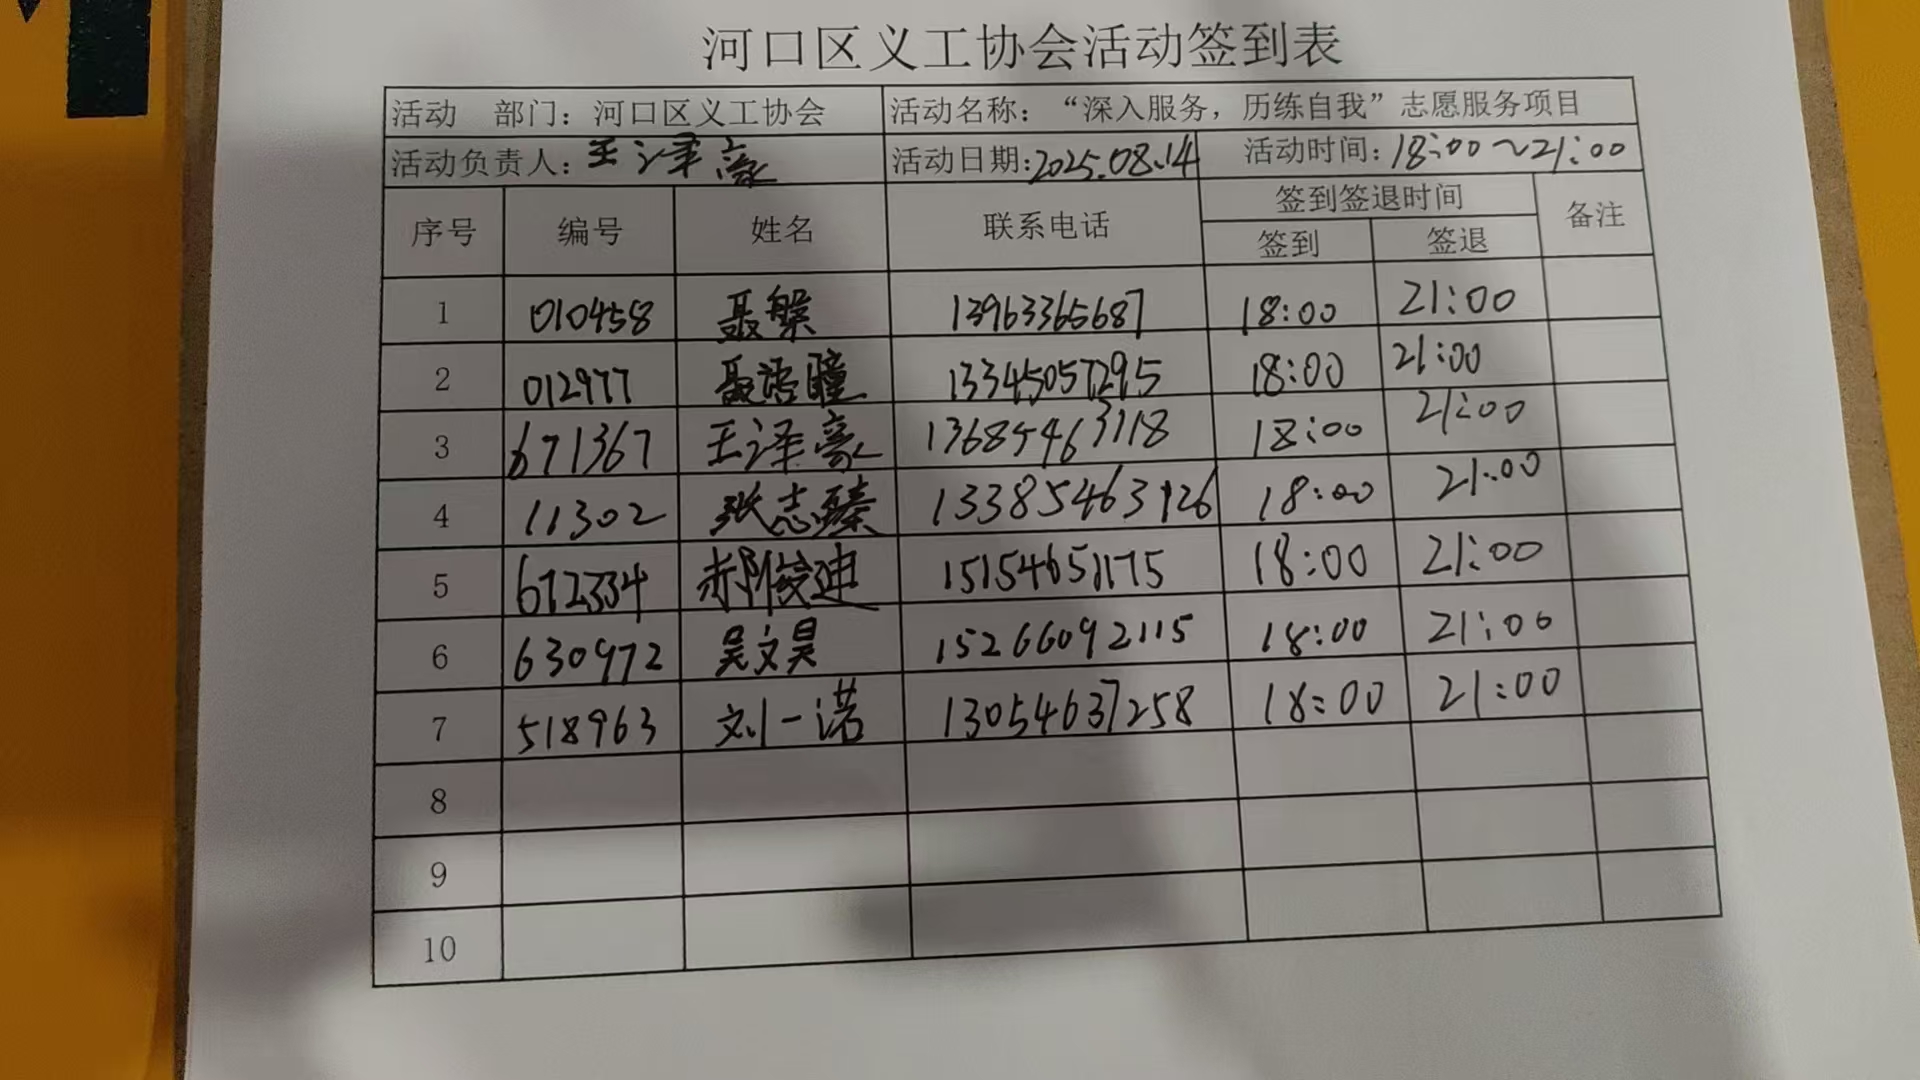 河口区义工协会活动签到表
活动 部门：河口区义工协会 活动名称：“深入服务，历练自我”志愿服务项目
活动负责人：王泽豪 活动日期:2025.08.14 活动时间:18:00~21:00
序号 编号 姓名 联系电话 签到签退时间 备注
签到 签退
1 010458 聂 13963365687 18:00 21:00
2 012977 聂语瞳 13345057295 18:00 21:00
3 671367 王泽豪 13685463118 18:00 21:00
4 11302 张志臻 13385463926 18:00 21:00
5 672334 15154651175 18:00 21:00
6 630972 吴文昊 15266092115 18:00 21:00
7 518963 刘一诺 13054637258 18:00 21:00
8
9
10